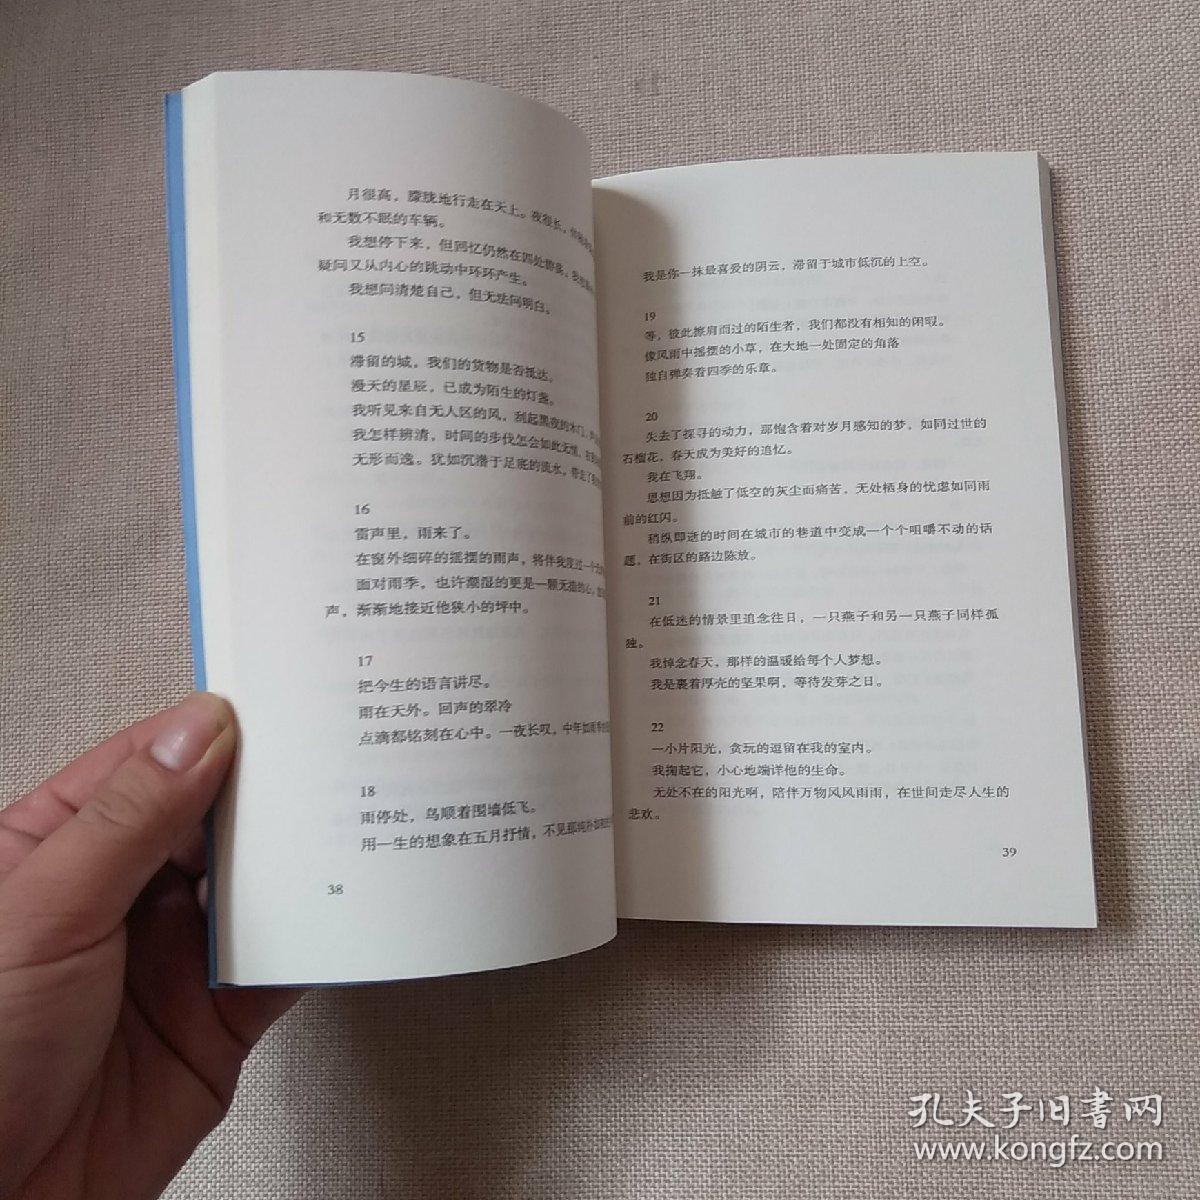 月很高，朦胧地行走在天上。夜很长，
和无数不眠的车辆。
我想停下来，但回忆仍然在四处
疑问又从内心的跳动中环环产生。
我想问清楚自己，但无法问明白。
15
滞留的城，我们的货物是否抵达。
漫天的星辰，已成为陌生的灯盏。
我听见来自无人区的风，刮起黑夜的木门，
我怎样辨清，时间的步伐怎会如此无情，
无形而逸。犹如沉潜于足底的流水，带走了
16
雷声里，雨来了。
在窗外细碎的摇摆的雨声，将伴我度过一个
面对雨季，也许潮湿的更是一颗无措的心，
声，渐渐地接近他狭小的坪中。
17
把今生的语言讲尽。
雨在天外。回声的翠冷
点滴都铭刻在心中。一夜长叹，中年如雨季
18
雨停处，鸟顺着围墙低飞。
用一生的想象在五月抒情，不见那纯朴
38
我是你一抹最喜爱的阴云，滞留于城市低沉的上空。
19
等，彼此擦肩而过的陌生者，我们都没有相知的闲暇。
像风雨中摇摆的小草，在大地一处固定的角落
独自弹奏着四季的乐章。
20
失去了探寻的动力，那饱含着对岁月感知的梦，如同过世的
石榴花，春天成为美好的追忆。
我在飞翔。
思想因为抵触了低空的灰尘而痛苦，无处栖身的忧虑如同雨
前的红闪。
稍纵即逝的时间在城市的巷道中变成一个个咀嚼不动的话
题，在街区的路边陈放。
21
在低迷的情景里追念往日，一只燕子和另一只燕子同样孤
独。
我悼念春天，那样的温暖给每个人梦想。
我是裹着厚壳的坚果啊，等待发芽之日。
22
一小片阳光，贪玩的逗留在我的室内。
我掬起它，小心地端详他的生命。
无处不在的阳光啊，陪伴万物风风雨雨，在世间走尽人生的
悲欢。
39
孔夫子旧书网
www.kongfz.com